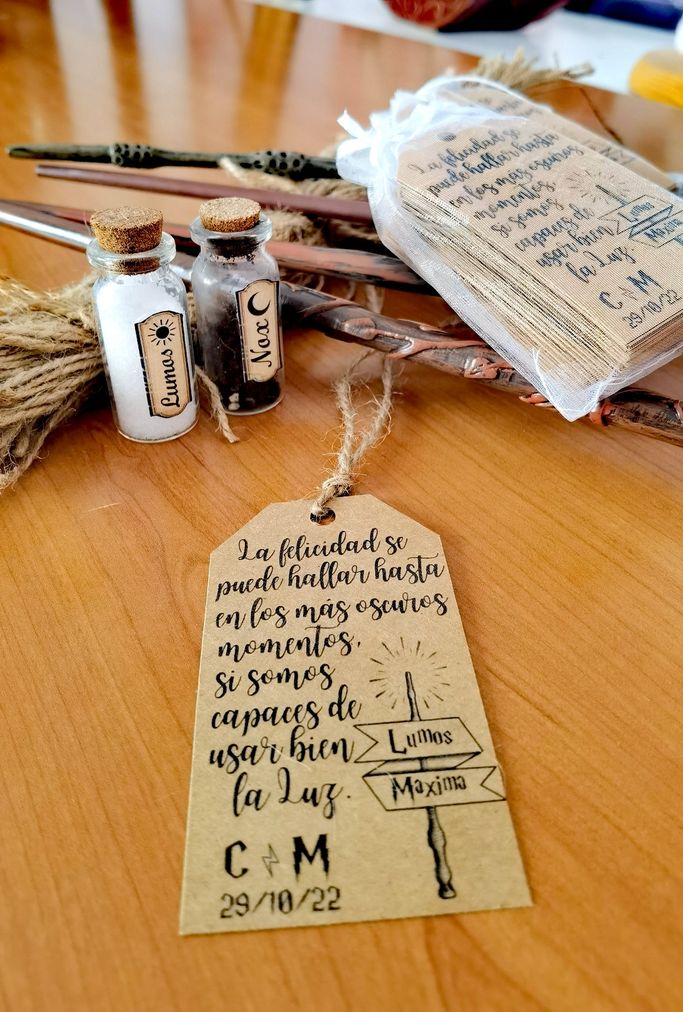 La felicidad se
puede hallar hasta
en los más oscuros
momentos,
si somos
capaces de
usar bien
la Luz.
Lumos
Maxima
C M
29/10/22
Lumos
Nox
La felicidad se
puede hallar hasta
en los más oscuros
momentos,
si somos
capaces de
usar bien
la Luz.
Lumos
C M
29/10/22